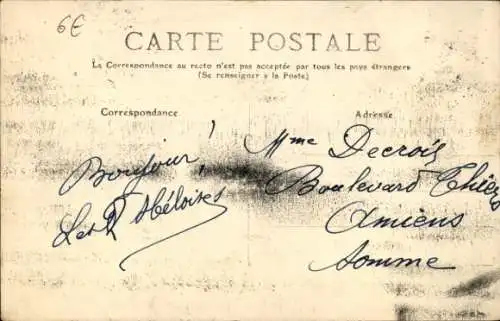 6E
CARTE POSTALE
La Correspondance au recto n'est pas acceptée par tous les pays étrangers
(Se renseigner à la Poste)
Correspondance
Adresse
Bonjour !
Les 2 Héloïses
Mme Decroix
Boulevard Thiers
Amiens
Somme